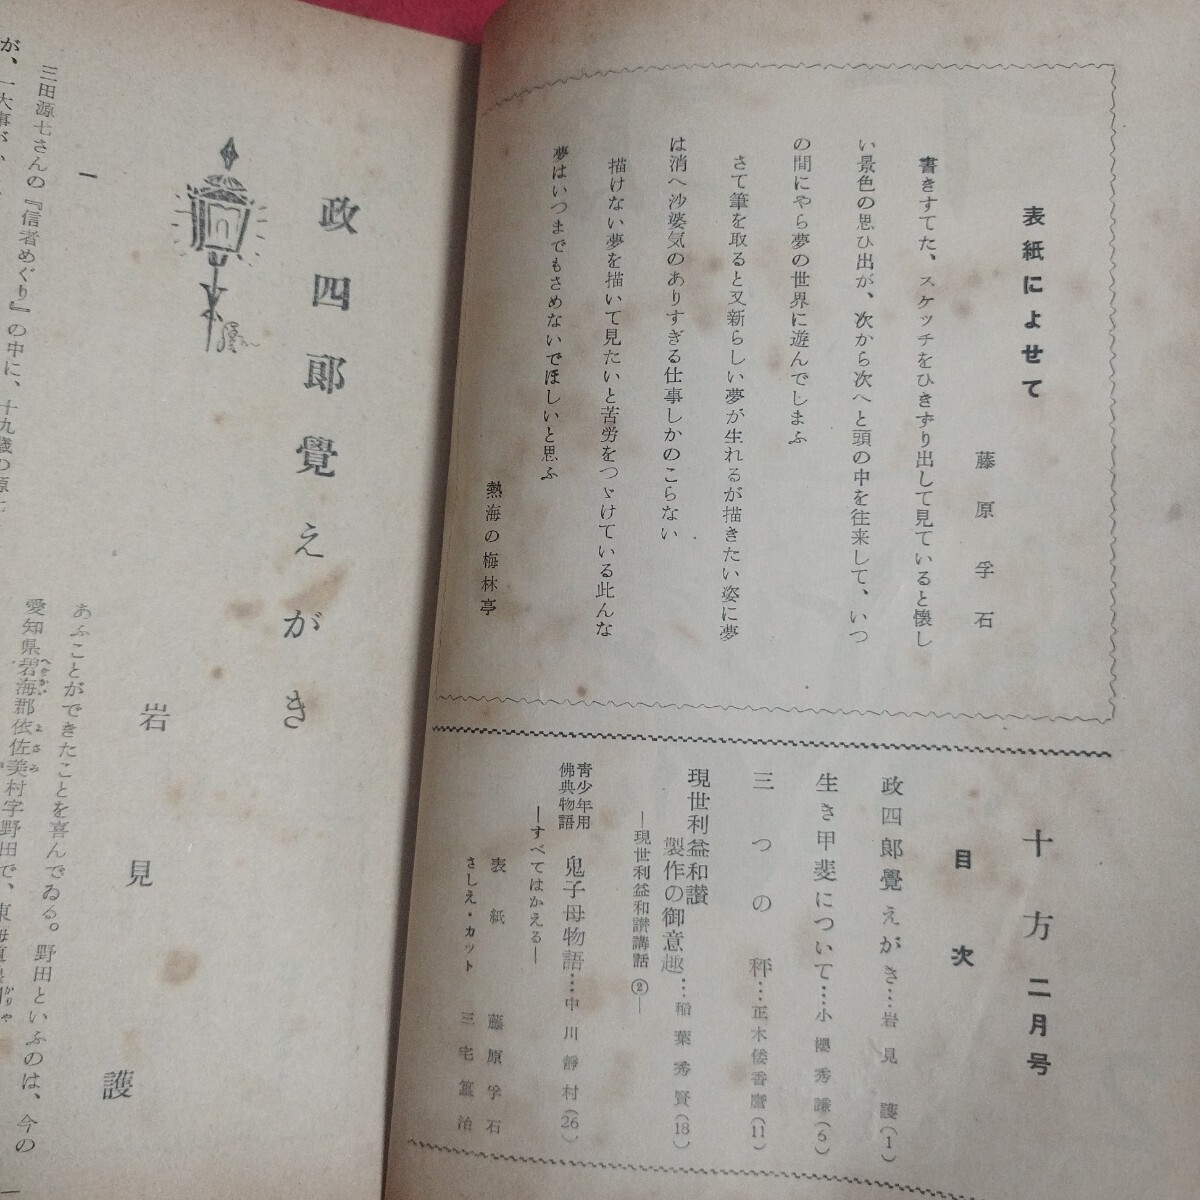 表紙によせて
藤原孚石
書きすてた、スケッチをひきずり出して見ていると懐し
い景色の思ひ出が、次から次へと頭の中を往来して、いつ
の間にやら夢の世界に遊んでしまふ
さて筆を取ると又新らしい夢が生れるが描きたい姿に夢
は消へ沙婆気のありすぎる仕事しかのこらない
描けない夢を描いて見たいと苦労をつゞけている此んな
夢はいつまでもさめないでほしいと思ふ
熱海の梅林亭
十方 二月号
目次
政四郎覺えがき…岩見護(1)
生き甲斐について…小櫻秀謙(6)
三つの秤…正木倭香麿(11)
現世利益和讃
製作の御意趣…稲葉秀賢(18)
―現世利益和讃講話②―
青少年用
佛典物語
鬼子母物語…中川靜村(26)
―すべてはかえる―
表紙 藤原孚石
さしえ・カット 三宅篁治
政四郎覺えがき
岩見護
一
三田源七さんの『信者めぐり』の中に、十九歳の源七
が、一大事が、
あふことができたことを喜んでゐる。野田といふのは、今の
愛知県碧海郡依佐美村字野田で、東海道